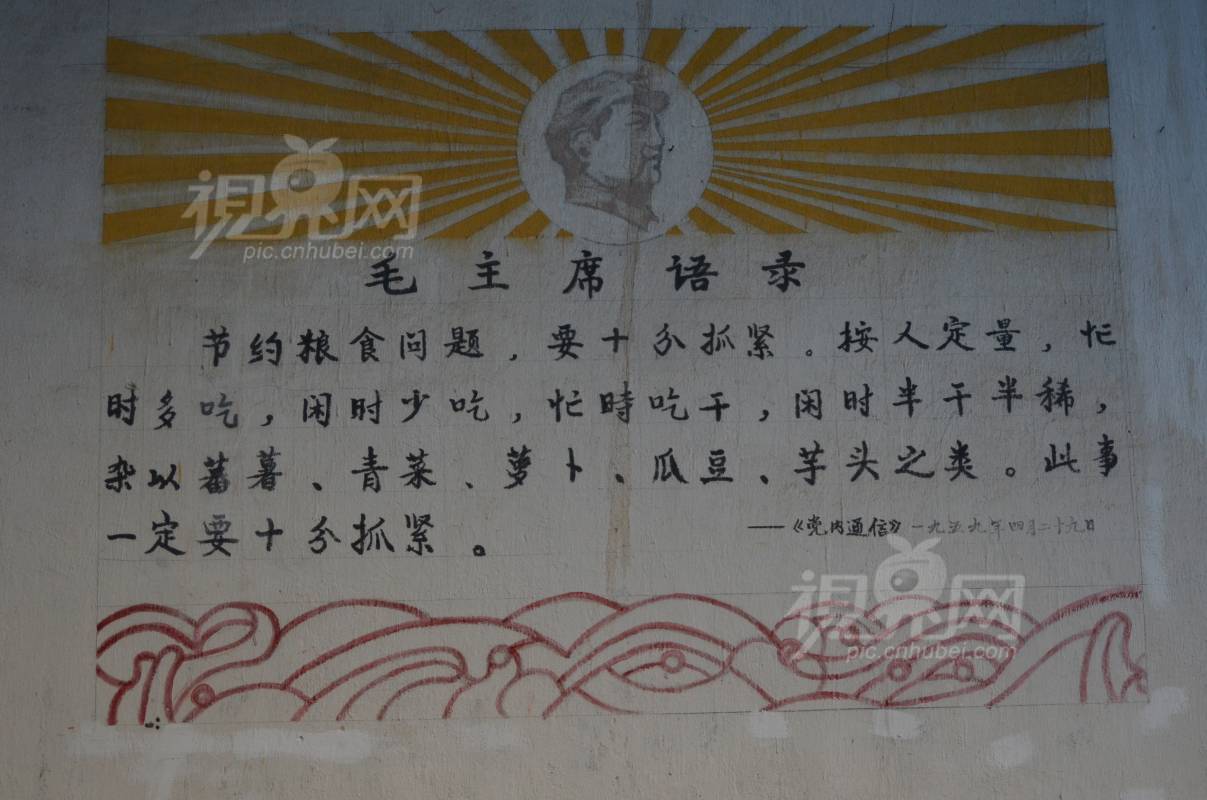 視界网
pic.cnhubei.com
毛主席语录
节约粮食问题，要十分抓紧。按人定量，忙
时多吃，闲时少吃，忙時吃干，闲时半干半稀，
杂以蕃薯、青菜、萝卜、瓜豆、芋头之类。此事
一定要十分抓紧。
——《党内通信》一九五九年四月二十九日
視界网
pic.cnhubei.com